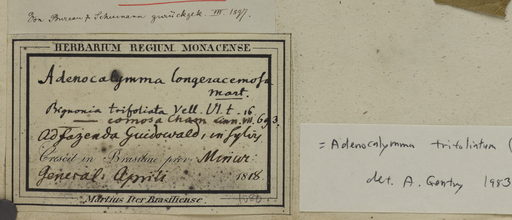 Von Bureau & Schumann zurückgek. VII. 1897.
HERBARIUM REGIUM MONACENSE
Adenocalymma longeracemosa
mart.
Bignonia trifoliata Vell. VI t. 16
comosa Cham Linn. VII. 693.
ad fazenda Guidowald, in sylvis
Crescit in Brasiliae prov. Minar.
General. Aprili 1818
Martius Iter Brasiliense.
= Adenocalymma trifoliatum (
det. A. Gentry 1983